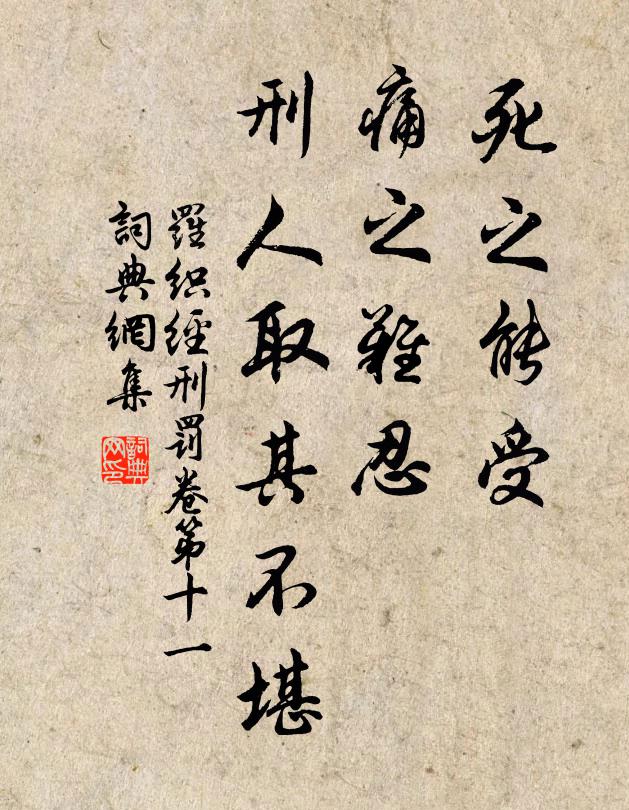 死之能受
痛之難忍
刑人取其不堪
羅织經刑罰卷第十一
詞典網集
詞典
网印